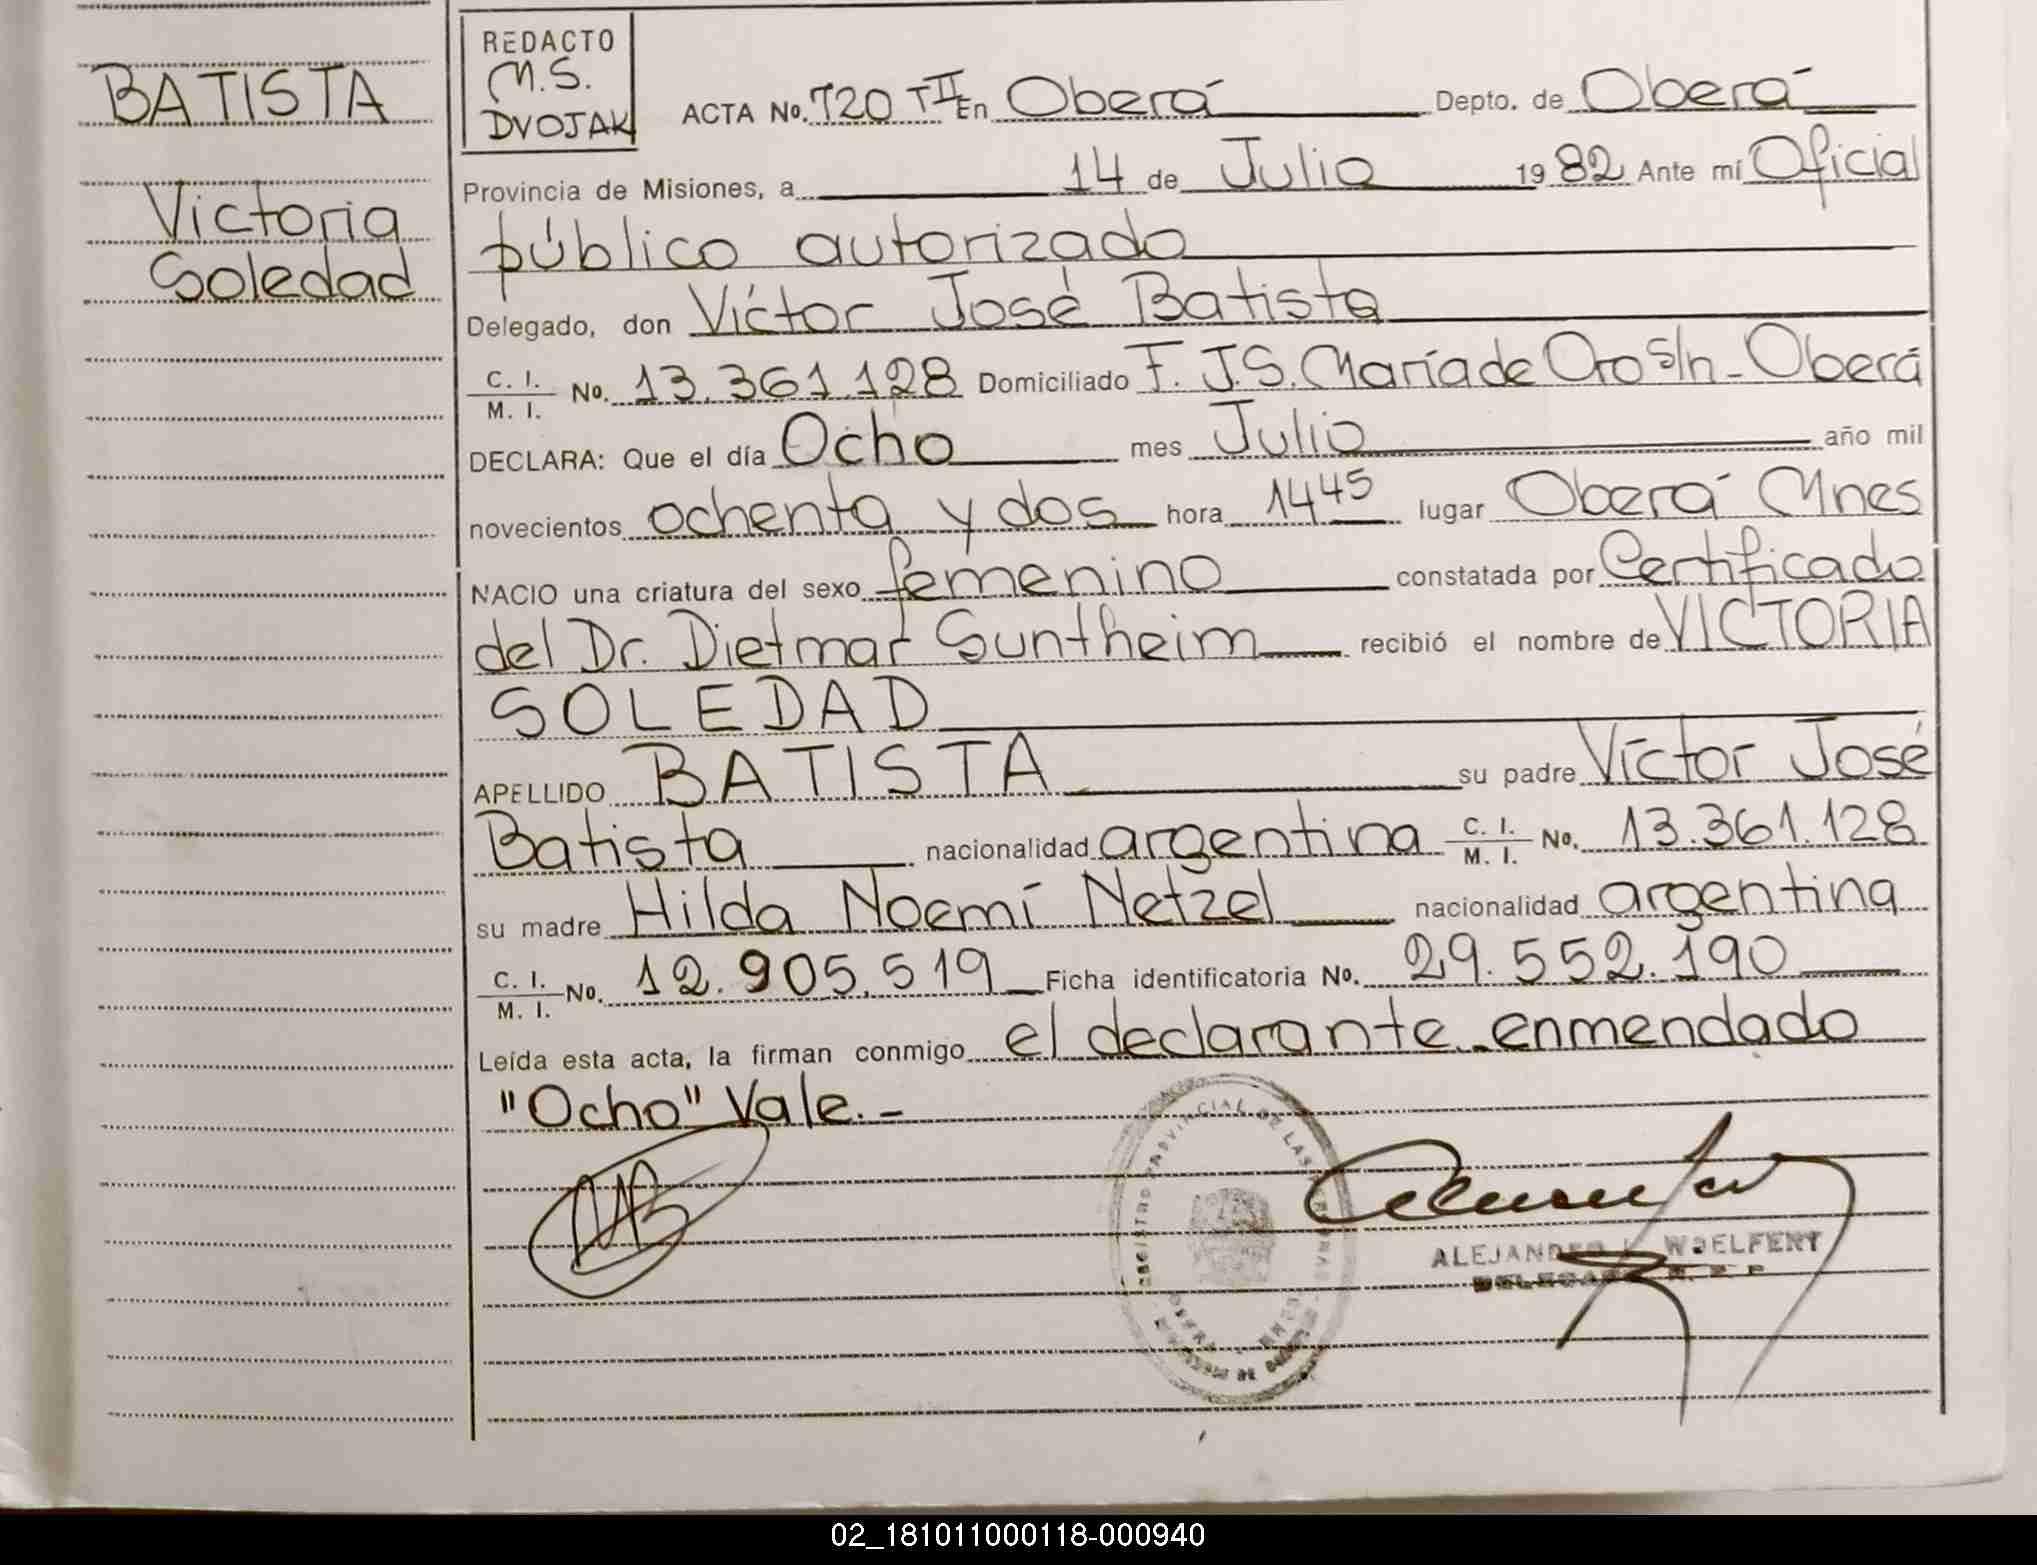 BATISTA
Victoria
Soledad
REDACTO
M.S.
DVOJAK
ACTA No. 720 TII En Oberá Depto. de Oberá
Provincia de Misiones, a 14 de Julio 1982 Ante mí Oficial
público autorizado
Delegado, don Víctor José Batista
C. I. / M. I. No. 13.361.128 Domiciliado F. J.S. María de Oro s/n - Oberá
DECLARA: Que el día Ocho mes Julio año mil
novecientos ochenta y dos hora 14 45 lugar Oberá Mnes
NACIO una criatura del sexo femenino constatada por Certificado
del Dr. Dietmar Suntheim recibió el nombre de VICTORIA
SOLEDAD
APELLIDO BATISTA su padre Víctor José
Batista nacionalidad argentina C. I. / M. I. No. 13.361.128
su madre Hilda Noemí Netzel nacionalidad argentina
C. I. / M. I. No. 12.905.519 Ficha identificatoria No. 29.552.190
Leída esta acta, la firman conmigo el declarante - enmendado
"Ocho" Vale.-
PROVINCIAL DE LAS
ALEJANDRO WOELFERT
02_181011000118-000940